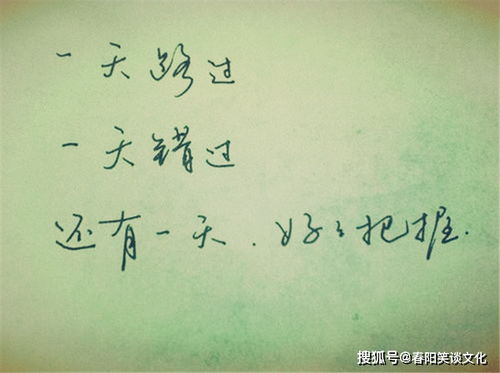 一天路过
一天错过
还有一天.好好把握.
搜狐号@春阳笑谈文化